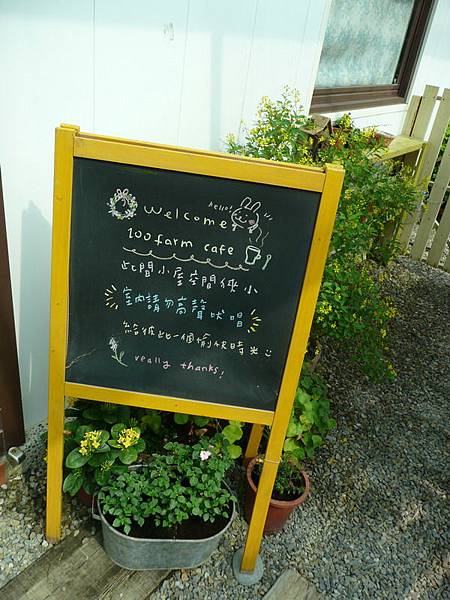 Hello!
Welcome
100 farm cafe
此間小屋空間狹小
室內請勿高聲吠唱
給彼此一個愉快時光
really thanks!